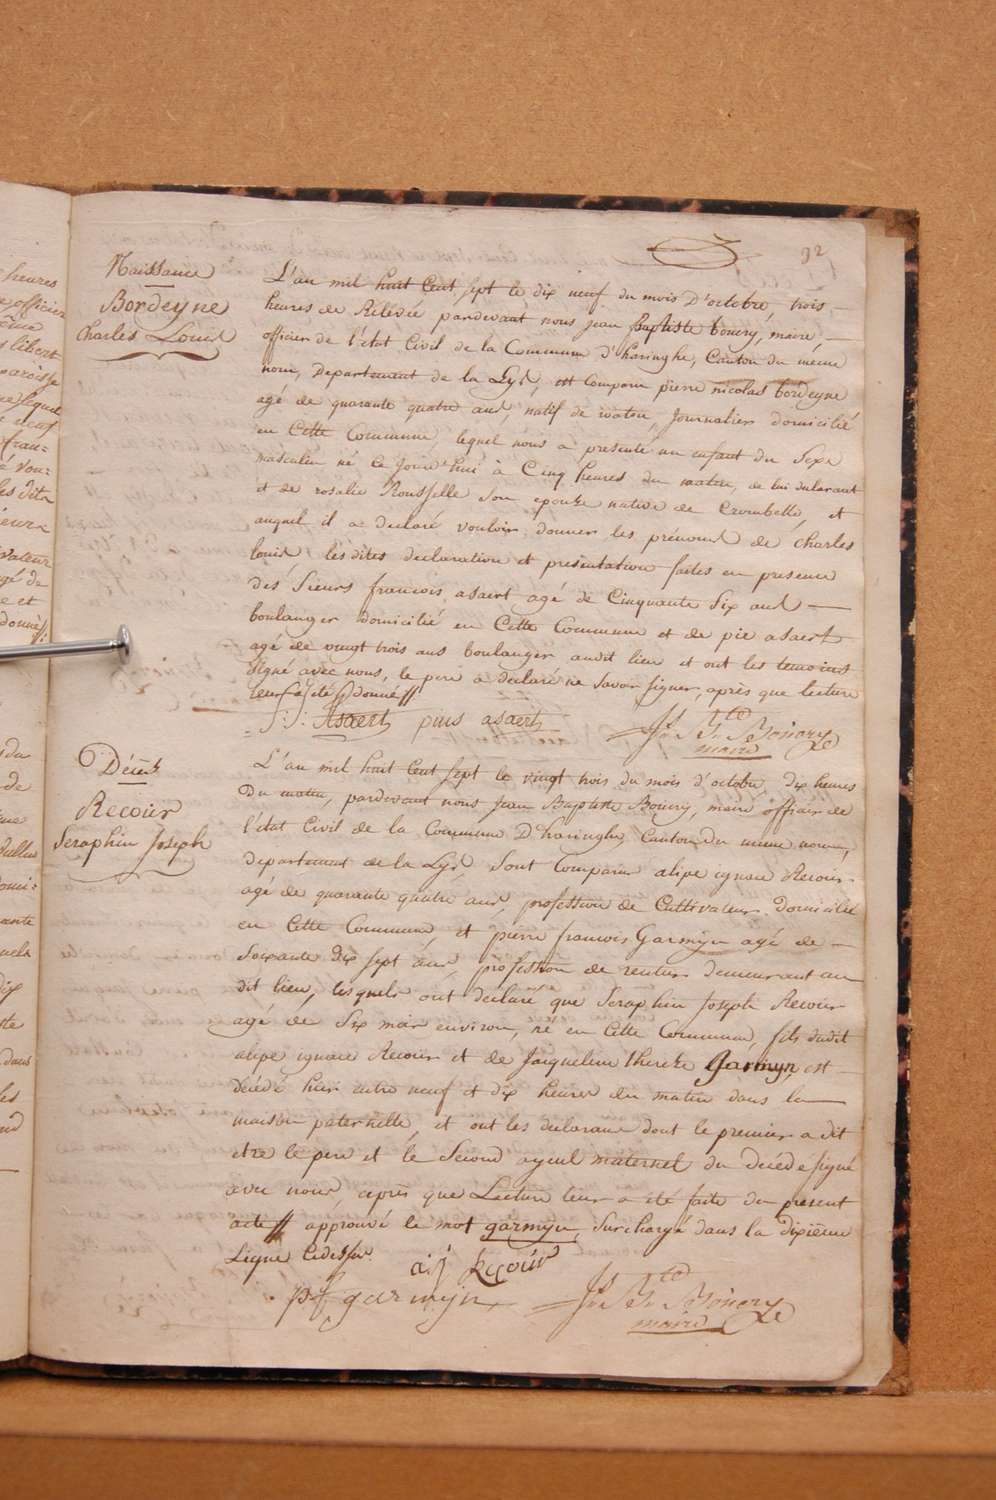 32
Naissance
Bordeyne
Charles Louis
L'an mil huit Cent sept le dix neuf du mois D'octobre, trois
heures de Rélévée pardevant nous jean Baptiste bouery, maire,
officier de l'état Civil de la Commune d'haringhe, Canton du meme
nom, Departement de la Lys, est Comparu pierre nicolas bordeyne
agé de quarante quatre ans, natif de watou, journalier domicilié
en Cette Commune, lequel nous a presenté un enfant du Sexe
masculin né ce jourd'hui à Cinq heures du matin, de lui declarant
et de rosalie Rousselle son epouse native de Crombeke, et
auquel il a declaré vouloir donner les prénoms de Charles
louis, lesdites declaration et presentation faites en presence
des Sieurs francois asaert agé de Cinquante Six ans
boulanger domicilié en Cette Commune et de pie asaert
agé de vingt trois ans boulanger audit lieu et ont les temoins
signé avec nous, le pere a declaré ne savoir signer, après que lecture
leur a été donné
f: j: Asaert pius asaert Jn Bte Bouery
maire
Décès
Recour
Seraphin Joseph
L'an mil huit Cent Sept le vingt trois du mois d'octobre, dix heures
Du matin, pardevant nous Jean Baptiste Bouery, maire officier de
l'état Civil de la Commune D'haringhe, Canton Du meme nom,
departement de la Lys, Sont Comparus alipe ignace Recour
agé de quarante quatre ans, profession de Cultivateur Domicilié
en Cette Commune, et pierre francois Garmijn agé de
Soixante dix sept ans, profession de rentier demeurant au
dit lieu, lesquels ont declaré que Seraphin Joseph Recour
agé de Six mois environ, né en Cette Commune, fils dudit
alipe ignace Recour et de Jacqueline therese garmijn, est
décédé hier entre neuf et dix heures du matin dans la
maison paternelle, et ont les declarans dont le premier a dit
etre le pere et le Second ayeul maternel du décédé signé
avec nous, après que Lecture leur a été faite du present
acte approuvé le mot garmijn, Surchargé dans la dixième
Ligne Cidessus.
a:j Recour
p f garmijn Jn Bte Bouery
maire